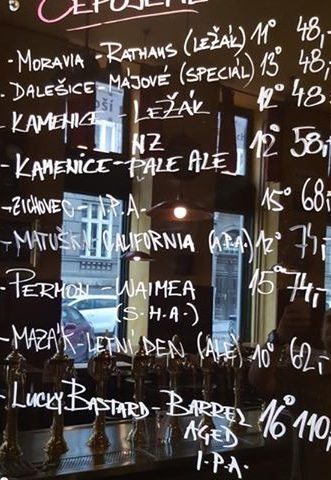 ČEPUJEME
- MORAVIA - RATHAUS (LEŽÁK) 11° 48,-
- DALEŠICE - MÁJOVÉ (SPECIÁL) 13° 48,-
- KAMENICE - LEŽÁK 12° 48,-
NZ
- KAMENICE - PALE ALE 12° 58,-
- ZICHOVEC - I.P.A. 15° 68,-
- MATUŠKA - CALIFORNIA (A.P.A.) 12° 74,-
- PERMON - WAIMEA 15° 74,-
(S.H.A.)
- MAZÁK - LETNÍ DEN (ALE) 10° 62,-
- LUCKY BASTARD - BARREL 16° 110,
AGED
I.P.A.